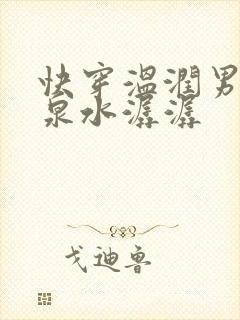 快穿温润男
泉水潺潺
戈迪鲁